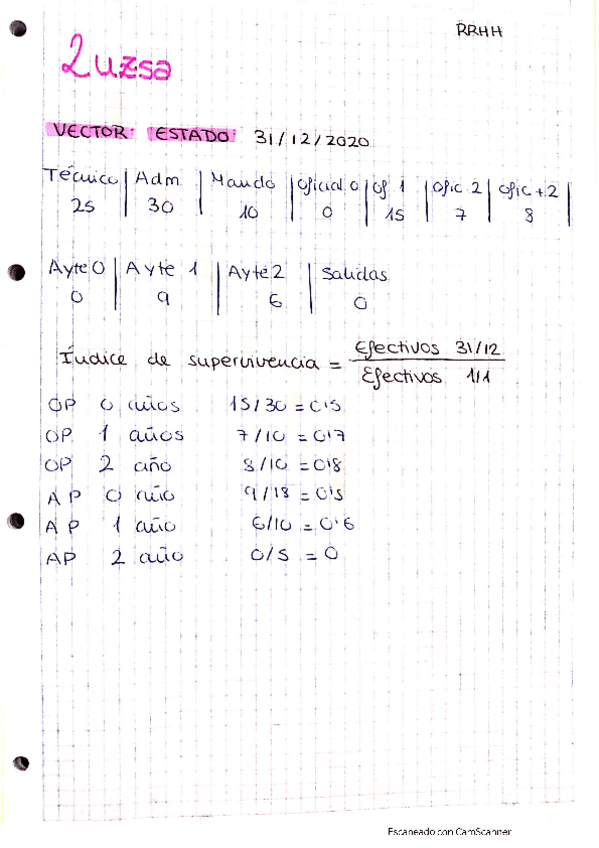 RRHH
Luzsa
VECTOR: ESTADO: 31/12/2020
Técnico | Adm | Mando | Oficial 0 | Of 1 | Ofic 2 | Ofic +2 |
25 30 10 0 15 7 8
Ayte 0 | Ayte 1 | Ayte 2 | Salidas
0 9 6 0
Índice de supervivencia = Efectivos 31/12
Efectivos 1/1
OP 0 años 15/30 = 0'5
OP 1 años 7/10 = 0'7
OP 2 año 8/10 = 0'8
AP 0 año 9/18 = 0'5
AP 1 año 6/10 = 0'6
AP 2 año 0/5 = 0
Escaneado con CamScanner